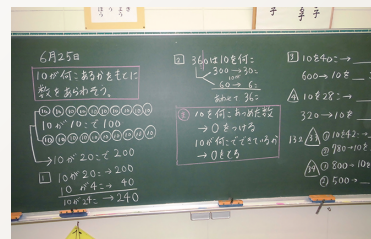 6月25日
10が何こあるかをもとに
数をあらわそう。
10 10 10 10 10 10 10 10 10 10
10が10こで100
10 10 10 10 10 10 10 10 10 10
→10が20こで200
1
10が20こ→200
10が4こ→40
10が24こ→240
2 360は10を何こ
300→30こ
60→6こ
あわせて36こ
10を何こあつめた数
→0をつける
10が何こでできているか
→0をとる
3 10を40こ→
600→10を
4 10を28こ→
320→10を
① 10を42こ→
② 780→10を
① 800→10を
② 500→